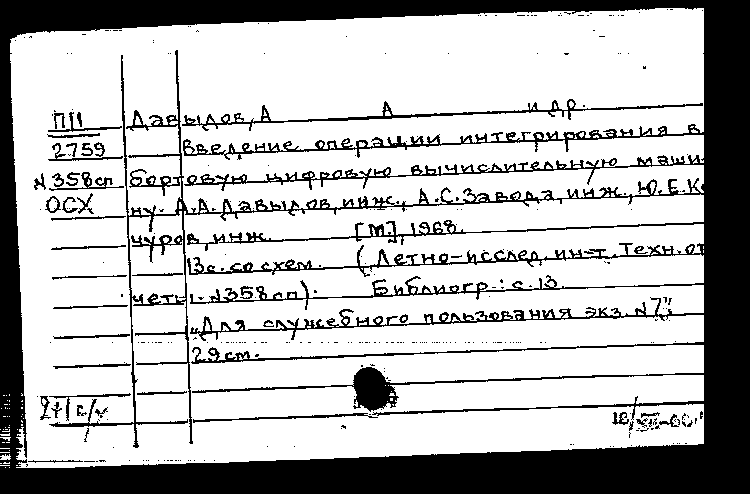 ПП Давыдов, А А и др.
2759 Введение операции интегрирования в
N358сп бортовую цифровую вычислительную маши-
ОСХ ну. А.А.Давыдов, инж., А.С.Завода, инж., Ю.Е.К
чуров, инж. [М.], 1968.
13с. со схем. (Летно-исслед. ин-т. Техн. от
четы. N358сп). Библиогр.: с. 13.
"Для служебного пользования экз. N7".
29см.
2+1 к/у